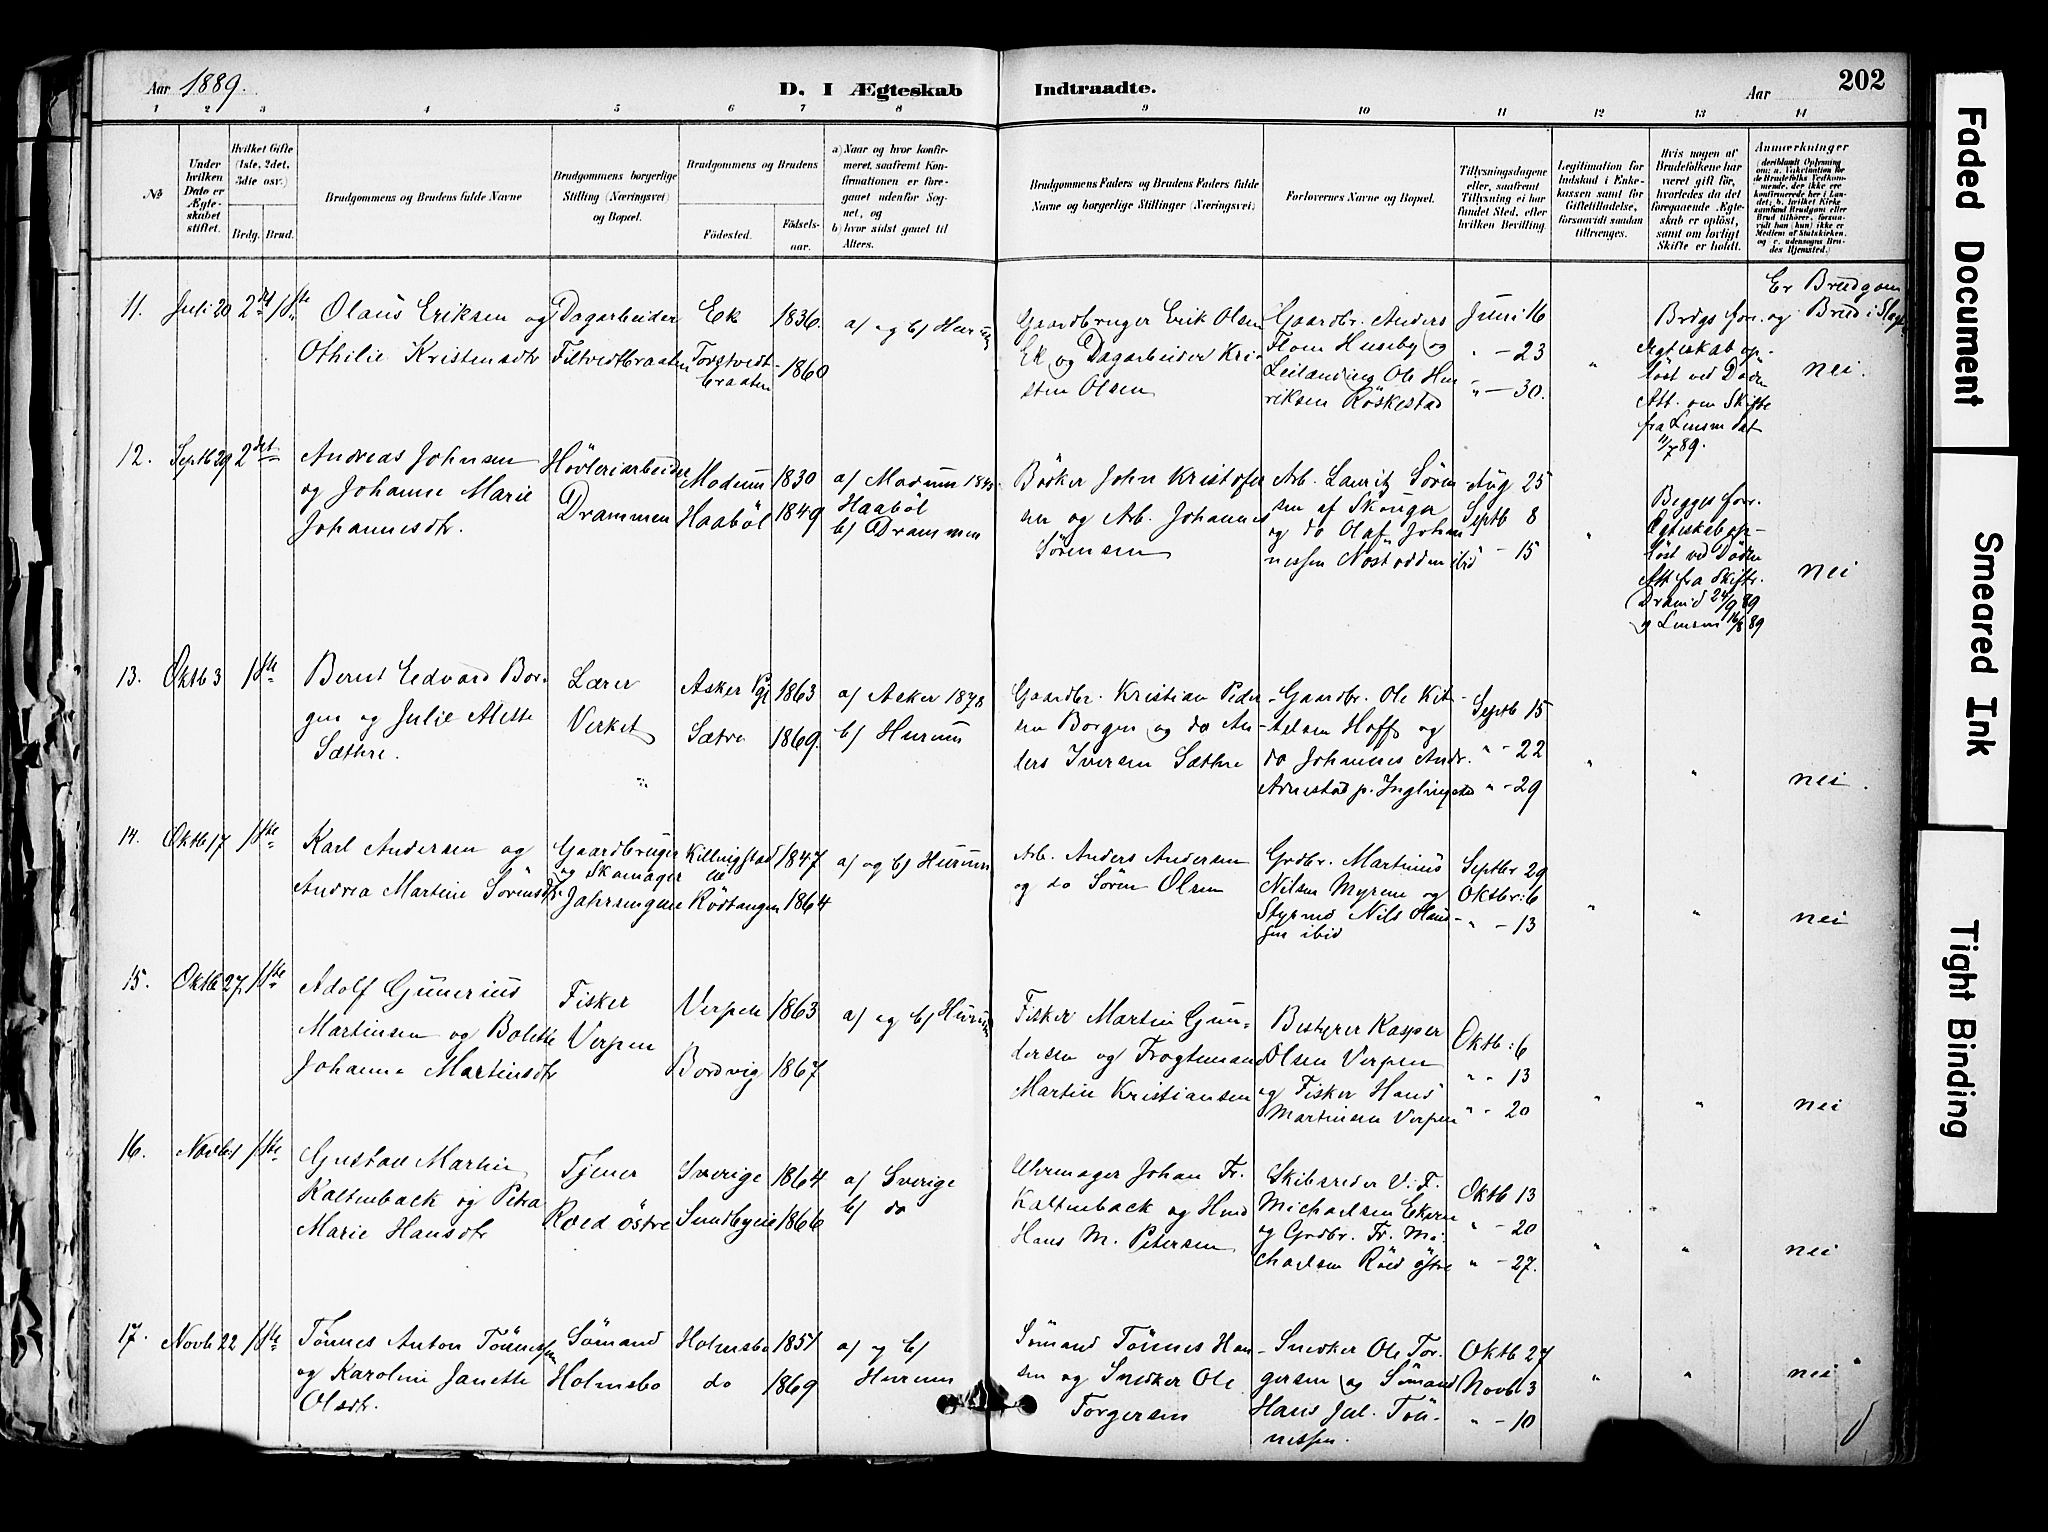 Aar 1889.
D. I Ægteskab Indtraadte.
Aar
202
1 2 3 4 5 6 7 8 9 10 11 12 13 14
No
Under hvilken Dato er Ægteskabet stiftet.
Hvilket Gifte (1ste, 2det, 3die osv.)
Brdg. Brud.
Brudgommens og Brudens fulde Navne
Brudgommens borgerlige Stilling (Næringsvei) og Bopæl.
Brudgommens og Brudens
Fødested.
Fødselsaar.
a) Naar og hvor konfirmeret, saafremt Konfirmationen er foregaaet udenfor Sognet, og
b) hvor sidst gaaet til Alters.
Brudgommens Faders og Brudens Faders fulde Navne og borgerlige Stillinger (Næringsvei)
Forlovernes Navne og Bopæl.
Tillysningsdagene eller, saafremt Tillysning ei har fundet Sted, efter hvilken Bevilling.
Legitimation for Indskud i Enkekassen samt for Giftetilladelse, forsaavidt saadan tiltrænges.
Hvis nogen af Brudefolkene har været gift før, hvorledes da det foregaaende Ægteskab er opløst, samt om lovligt Skifte er holdt.
Anmærkninger
11. Juli 20 2det 1ste
Olaus Eriksen og
Othilie Kristensdtr
Dagarbeider
Filtvedtbraaten
Ek 1836.
Torstvedtbraaten 1860
a/ og b/ Hurum
Gaardbruger Erik Olsen
Ek og Dagarbeider Kristen Olsen
Gaardbr. Anders
Huseby og
Leilænding Ole Henriksen Röskestad
Juni 16
" - 23
" - 30.
"
Brdgs forr.
Ægteskab opløst ved Døden
Att. om Skifte
fra Lensm dat
11/7 89.
Er Brudgom
og Brud i Slægt
nei.
12. Septb 29 2det
Andreas Johnsen
og Johanne Marie
Johannesdtr.
Høvleriarbeider
Drammen
Modum 1830
Haabøl 1849
a/ Modum
Haabøl
b/ Drammen
John Kristofersen og Arb. Johannes
Sørensen
Arb. Lauritz Sørensen af Skouger
og do Olaf Johannessen Nøstodden ibid
Aug 25
Septb 8
" - 15
"
Begges forr.
Ægteskab opløst ved Døden
Att fra Skiftr.
24/9 89
og Lensm 16/8 89
nei
13. Oktb 3 1ste
Bernt Edvard Borgen og Julie Alette
Sæthre.
Lærer
Verket
"
Asker Pgj 1863
Sætre 1869.
a/ Asker 1878
b/ Hurum
Gaardbr. Kristian Pedersen Borgen og do Anders Iversen Sæthre
Gaardbr. Ole Kittelsen Hoff og
do Johannes Andr.
Arnestad p.
Septb 15
" - 22
" - 29
" "
nei.
14. Oktb 17 1ste
Karl Andersen og
Andrea Martine Sørensdtr.
Gaardbruger
og Skomager
Jahrsengene
Killingstad 1847
Rödtangen 1864
a/ og b/ Hurum
Arb. Anders Andersen
og do Sören Olsen
Grdbr. Martinus
Nilsen Myrene og
Styrmd Nils Hansen ibid
Septbr 29
Oktbr: 6
" - 13
" "
nei
15. Oktb 27 1ste
Adolf Gunerius
Martinsen og Bolette
Johanne Martinsdtr
Fisker
Verpen
Verpen 1863
Bordvig 1867
a/ og b/ Hurum
Fisker Martin Gundersen og Fragtemand
Martin Kristiansen
Bestyrer Kasper
Olsen Verpen
og Fisker Hans
Martinsen Verpen
Oktb: 6
" - 13
" - 20
" "
nei
16. Novb 1 1ste
Gustav Martin
Kaltenback og Petra
Marie Hansdtr
Tjener
Røed østre
Sverige 1864
Sundbyeie 1866
a/ Sverige
b/ do
Uhrmager Johan Fr.
Kaltenback og
Hans M. Petersen
Skibsreder V. F.
Michaelsen Ekeren
og Grdbr. Fr. Michaelsen Röed östre
Oktb 13
" - 20
" - 27.
" "
nei
17. Novb 22 1ste
Tønnes Anton Tønnessen
og Karoline Janette
Olsdtr.
Sømand
Holmsbo
Holmsbo 1851
do 1869
a/ og b/
Hurum
Sømand Tønnes Hansen og Snedker Ole
Torgersen
Snedker Ole Torgersen og Sømand
Hans Jul. Tönnessen.
Oktb 27
Novb 3
" - 10
" "
nei
Faded Document
Smeared Ink
Tight Binding